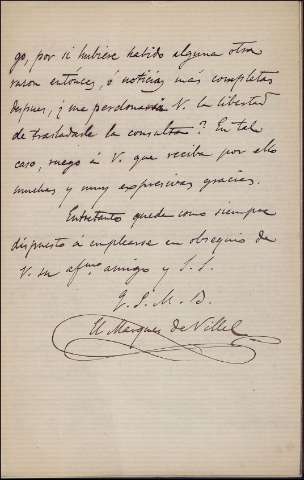 go, por si hubiere habido alguna otra
razon entónces, ó noticias más completas
despues, ¿me perdonaria V. la libertad
de trasladarle la consulta? En tal
caso, ruego á V. que reciba por ello
muchas y muy expresivas gracias.
Entretanto queda como siempre
dispuesto á emplearse en obsequio de
V. su afmo. amigo y S. S.
Q. S. M. B.
El Marques de Villel